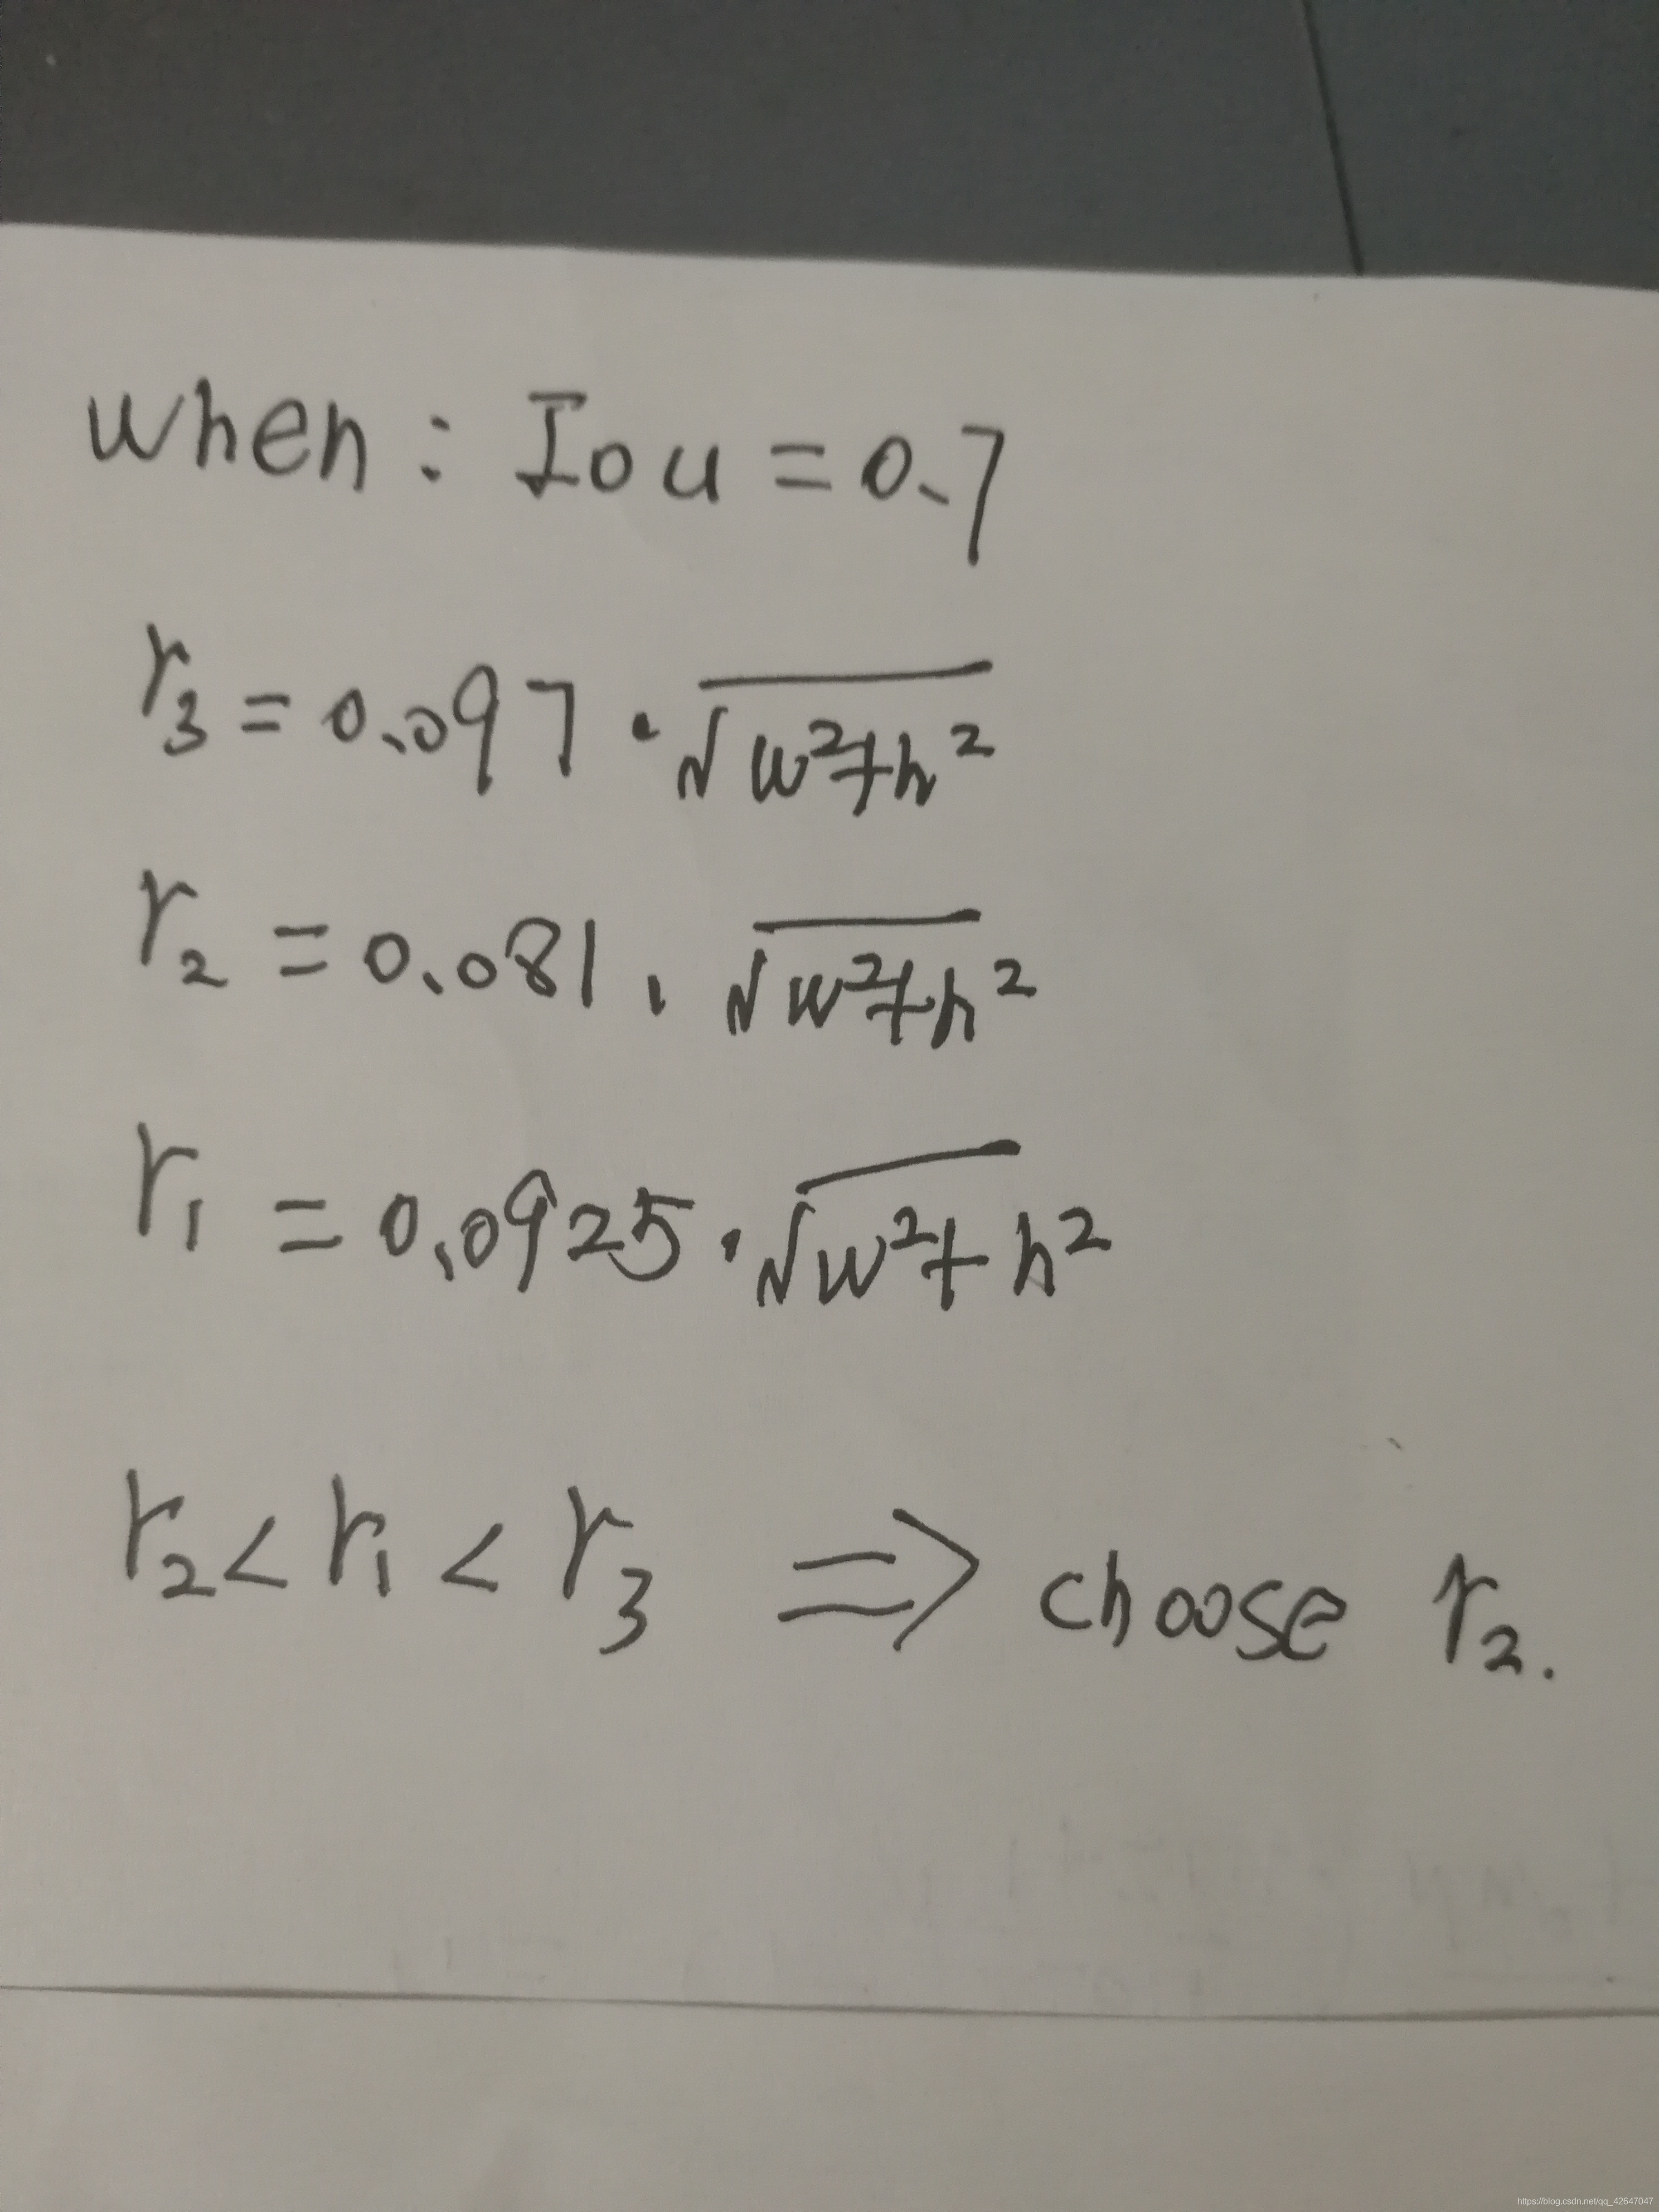 when : Iou = 0.7
r₃ = 0.097 · √w²+h²
r₂ = 0.081 . √w²+h²
r₁ = 0.0925 · √w²+h²
r₂ < r₁ < r₃ ⇒ choose r₂.
https://blog.csdn.net/qq_42647047